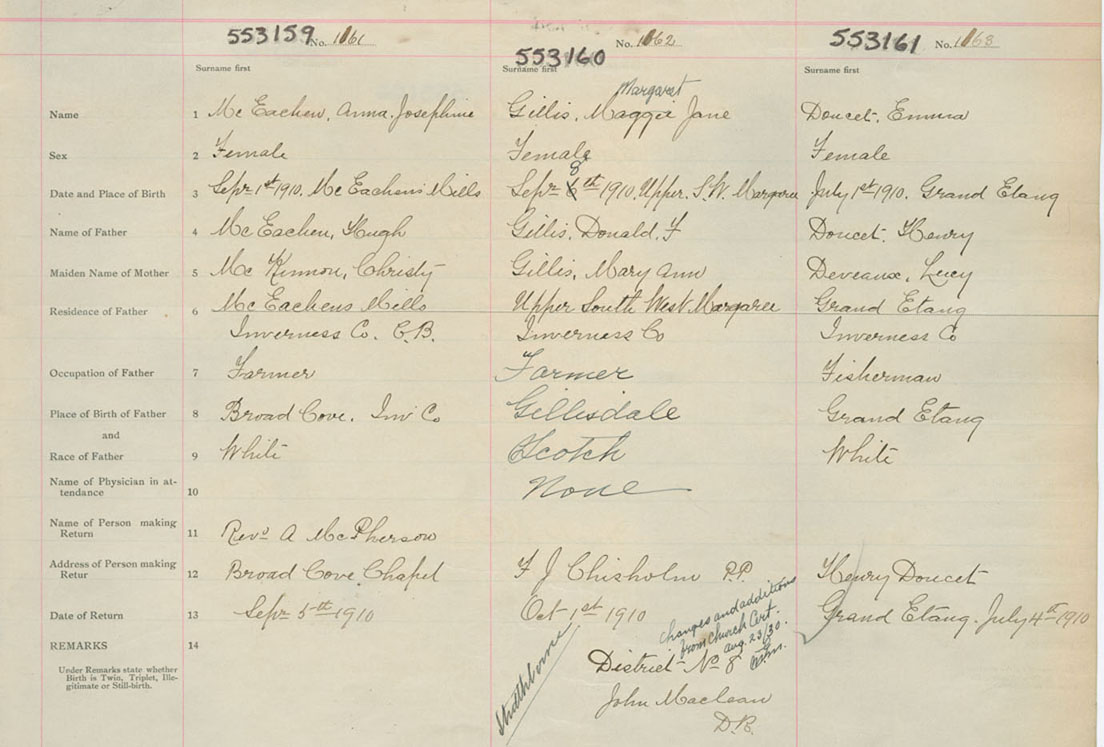 553159 No. 1061 553160 No. 1062 553161 No. 1063
Surname first Surname first Surname first
Margaret
Name 1 Mc Eachen, Anna Josephine Gillis, Maggie Jane Doucet, Emma
Sex 2 Female Female Female
8
Date and Place of Birth 3 Sepr 1st 1910. Mc Eachens Mills Sepr 6th 1910. Upper. S.W. Margaree July 1st 1910. Grand Etang
Name of Father 4 Mc Eachen, Hugh Gillis, Donald. F Doucet, Henry
Maiden Name of Mother 5 Mc Kinnon, Christy Gillis, Mary Ann Deveaux, Lucy
Residence of Father 6 Mc Eachens Mills Upper South West Margaree Grand Etang
Inverness Co. C.B. Inverness Co Inverness Co
Occupation of Father 7 Farmer Farmer Fisherman
Place of Birth of Father 8 Broad Cove. Inv Co Gillisdale Grand Etang
and
Race of Father 9 White Scotch White
Name of Physician in at-
tendance 10 None
Name of Person making
Return 11 Revd A McPherson
Address of Person making
Retur 12 Broad Cove Chapel F J Chisholm P.P. Henry Doucet
Date of Return 13 Sepr 5th 1910 Oct 1st 1910 Grand Etang. July 4th 1910
changes and additions
from Church Cert.
Aug. 23/30.
REMARKS 14
Under Remarks state whether
Birth is Twin, Triplet, Ille-
gitimate or Still-birth.
Strathlorne
District No 8
John Maclean
D.R.